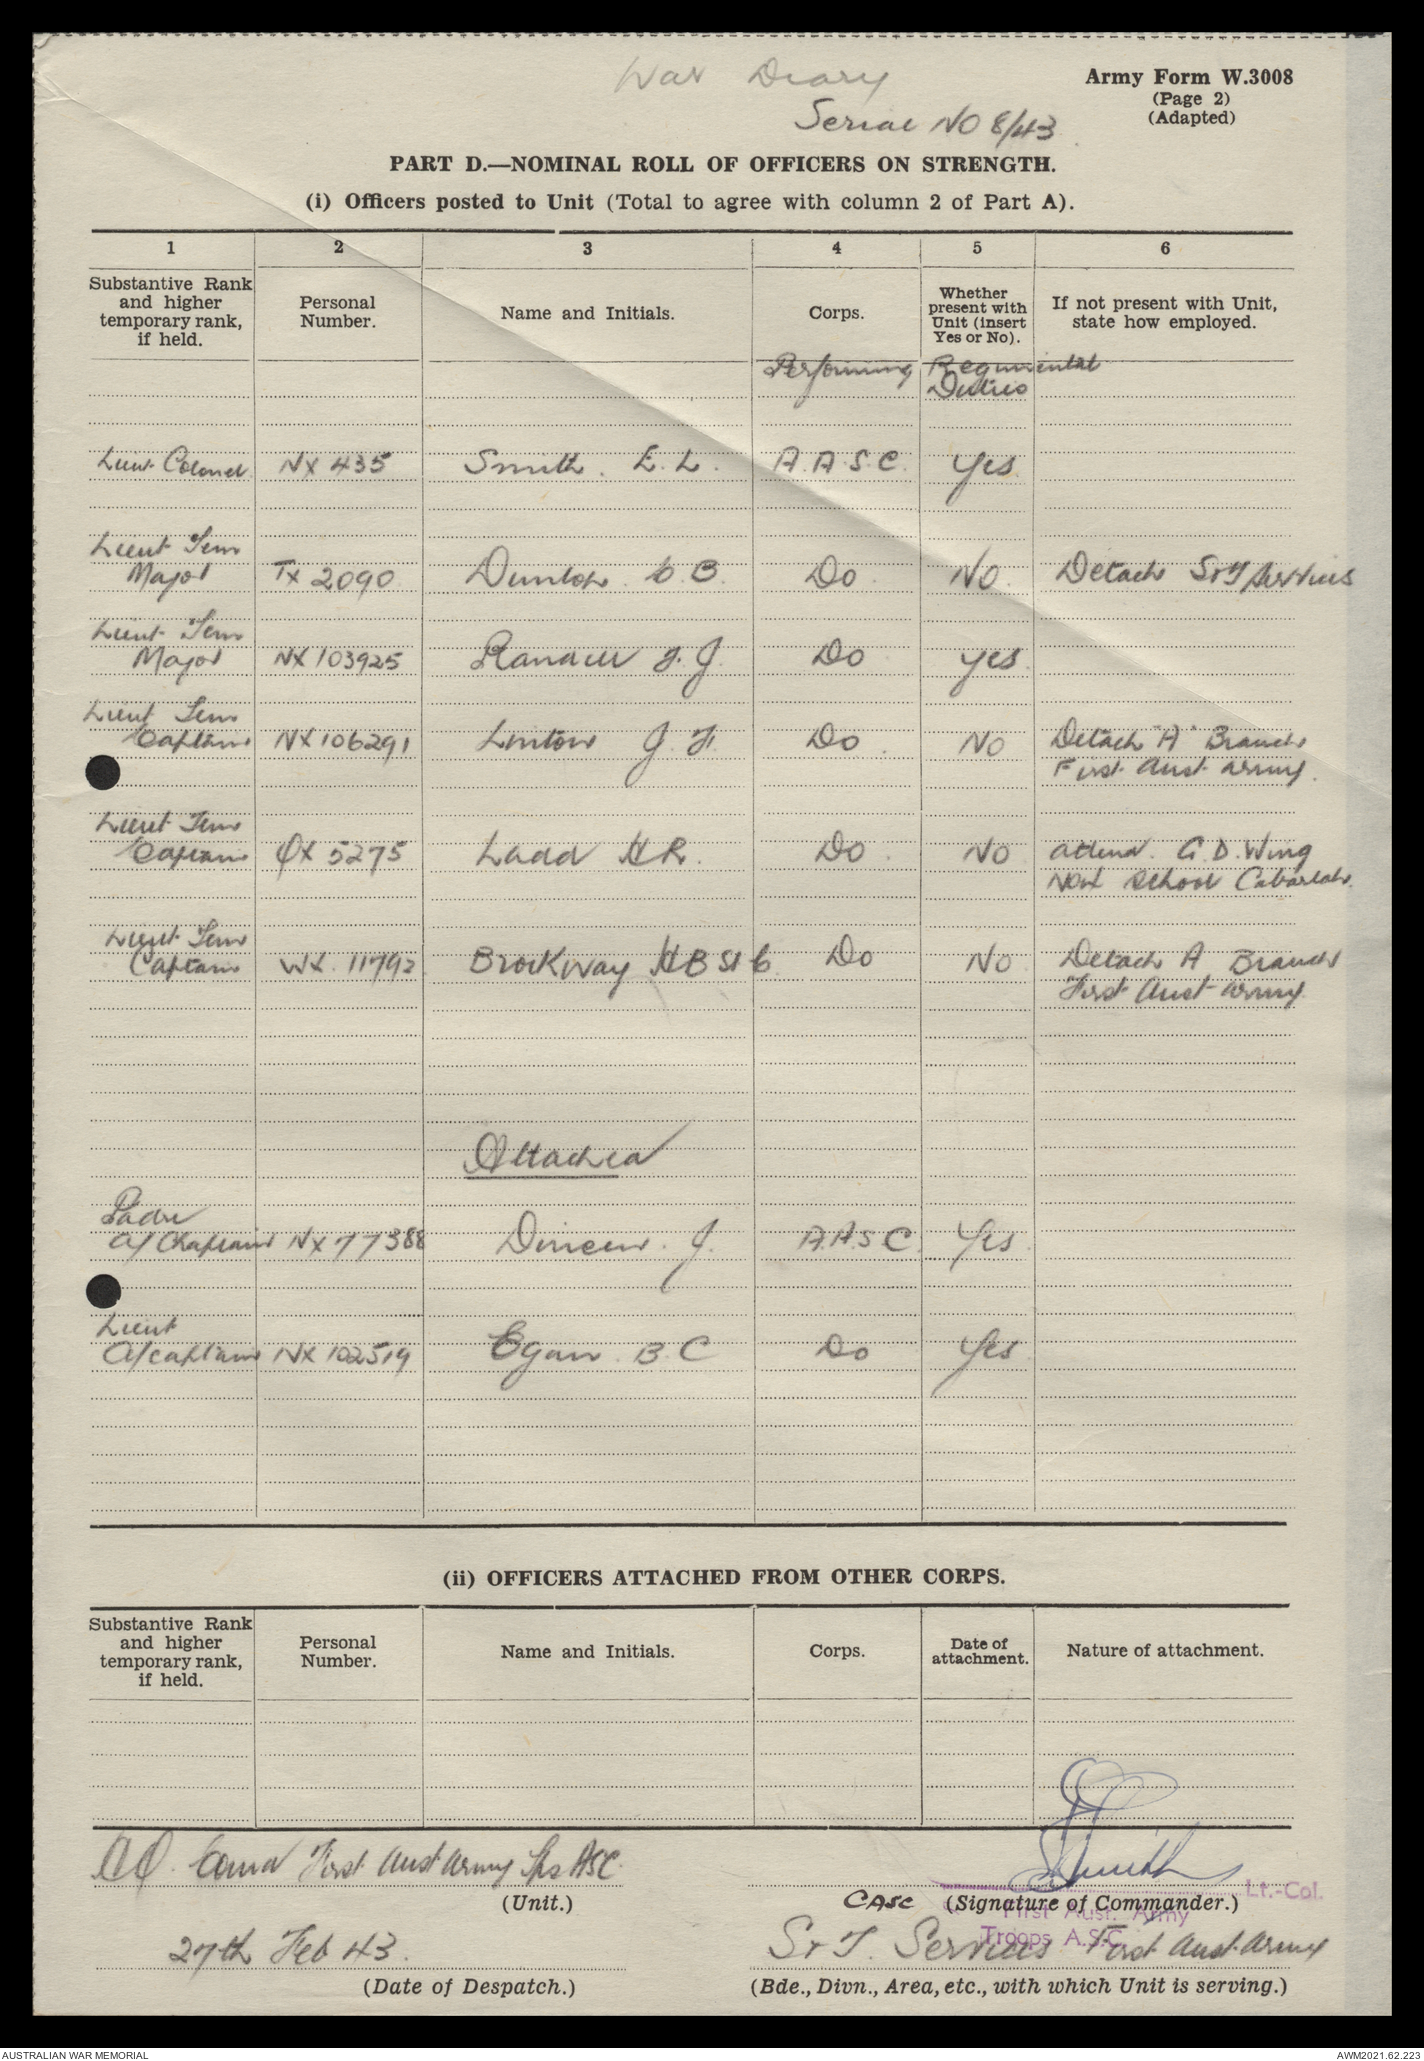 War Diary
Army Form W.3008
(Page 2)
(Adapted)
Serial No 8/43
PART D.—NOMINAL ROLL OF OFFICERS ON STRENGTH.
(i) Officers posted to Unit (Total to agree with column 2 of Part A).
1 2 3 4 5 6
Substantive Rank and higher temporary rank, if held. Personal Number. Name and Initials. Corps. Whether present with Unit (insert Yes or No). If not present with Unit, state how employed.
Performing Regimental
Duties
Lieut Colonel NX 435 Smith. E. L. A.A.S.C. Yes
Lieut Tem
Major TX 2090 Dunlop B. Do No. Detach S & T Services
Lieut Tem
Major NX 103925 Randell J. Do Yes
Lieut Tem
Captain NX 106291 Linton J. F. Do No Detach "A" Branch
First Aust Army.
Lieut Tem
Captain QX 5275 Ladd H R. Do No attend. G. D. Wing
School Cabarlah.
Lieut Tem
Captain WX. 11792 Brockway H B St Do No Detach A Branch
First Aust Army.
Attached
Padre
A/Chaplain NX 77388 J. A.A.S.C. Yes
Lieut
A/Captain NX 102519 Egan. B. C Do Yes
(ii) OFFICERS ATTACHED FROM OTHER CORPS.
Substantive Rank and higher temporary rank, if held. Personal Number. Name and Initials. Corps. Date of attachment. Nature of attachment.
Comd First Aust Army Tps ASC. Smith
Lt.-Col.
(Unit.) CASC (Signature of Commander.)
First Aust. Army
Troops A.S.C.
27th Feb 43. S & T. Services First Aust. Army
(Date of Despatch.) (Bde., Divn., Area, etc., with which Unit is serving.)
AUSTRALIAN WAR MEMORIAL AWM2021.62.223